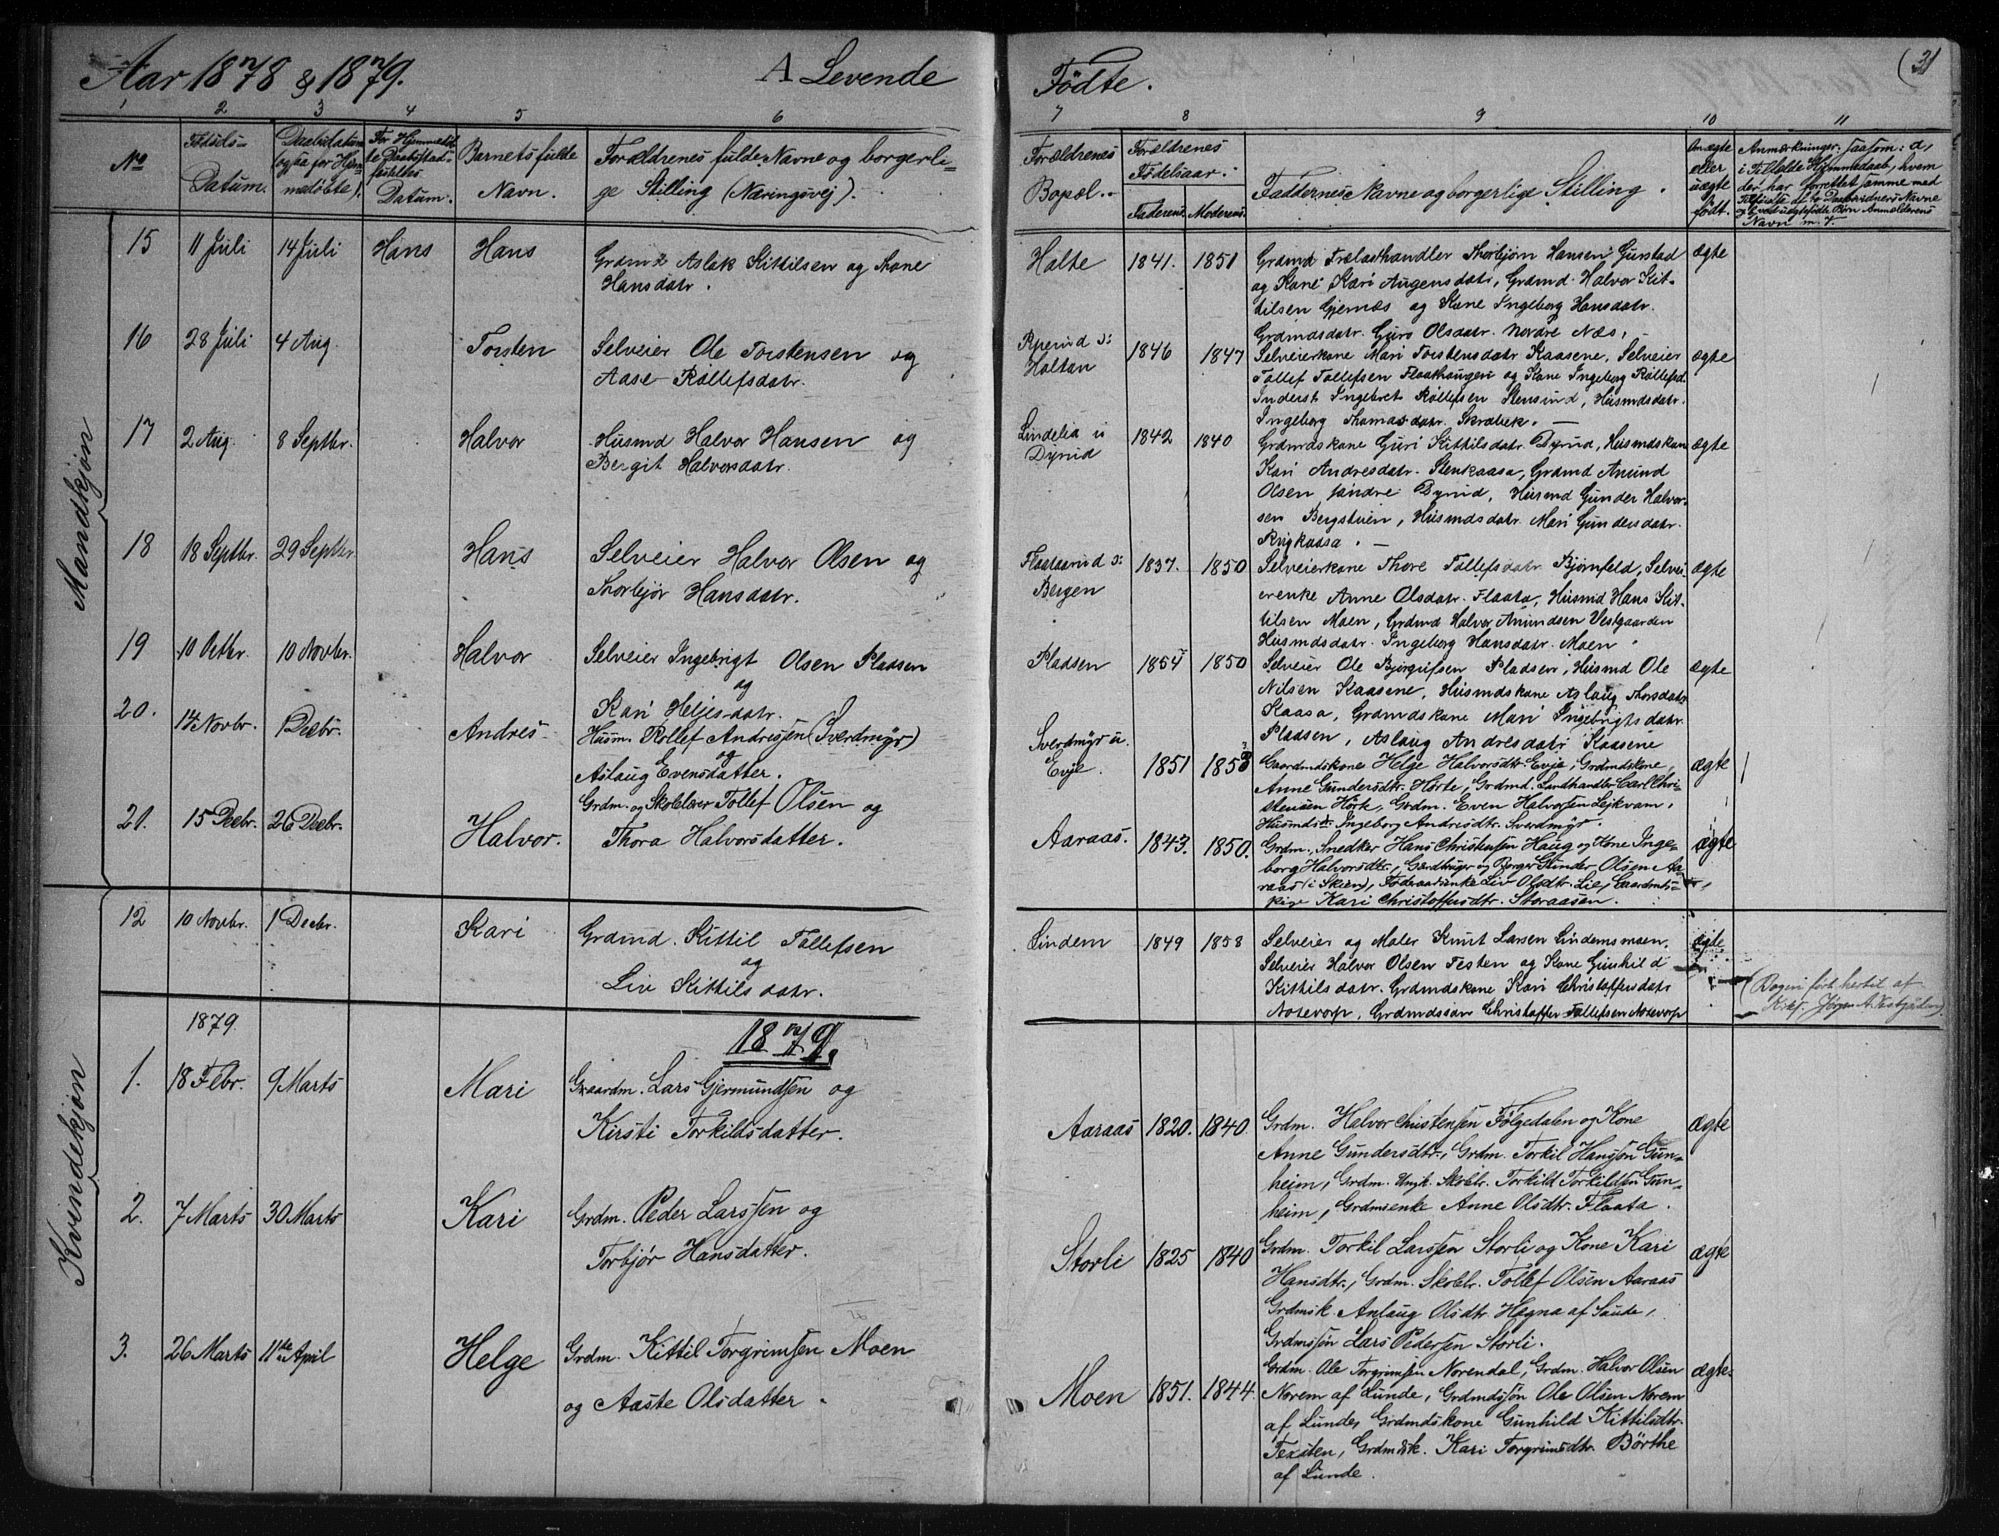 Aar 1878 & 1879.
A Levende
Fødte.
31
1 2 3 4 5 6
7 8 9 10 11
No
Fødsels-
Datum.
Daabsdatum
(ogsaa for Hjem-
medøbte).
For Hjemmedøb-
te Daabsstad-
fæstelses
Datum.
Barnets fulde
Navn.
Forældrenes fulde Navne og borgerli-
ge Stilling (Næringsvej).
Forældrenes
Bopæl.
Forældrenes
Fødelsaar.
Faderens. Moderens.
Faddernes Navne og borgerlige Stilling.
Om ægte
eller
uægte
født.
Anmærkninger, saasom: a,
i Tilfælde Hjemmedaab, hvem
der har forrettet samme med
Tilføielse af to Daabsvidners Navne
Navn m. V.
Mandkjøn
15 11 Juli 14 Juli Hans Hans
Grdmd Aslak Kittilsen og Kone
Hansdatr.
Halte 1841. 1851
Grdmd Frælasthandler Thorbjørn Hansen Gurstad
og Kone Kari Augensdatr, Grdmd. Halvor Kit-
tilsen Gjernæs og Kone Ingeborg Hansdatr.
Grdmdsdatr. Guro Olsdatr. Nordre Næs.
ægte
16 28 Juli 4 Aug. Torsten
Selveier Ole Torstensen og
Aase Røllefsdatr.
Holtan 1846 1847
Selveierkone Mari Torstensdatr Kaasene, Selveier
Tollef Tollefsen Flaathaugen og Kone Ingeborg Røllefsd.
Inderst Ingebret Røllefsen Stensrud, Husmdsdatr.
Ingeborg Thomasdatr. Skrabek.
ægte
17 2 Aug. 8 Septbr. Halvor
Husmd Halvor Hansen og
Bergit Halvorsdatr.
Lindelid u
Dyrud 1842 1840
Grdmdskone Guri Kittilsdatr. Dyrud, Husmdskone
Kari Andresdatr. Stenkaasa, Grdmd Amund
Olsen søndre Dyrud, Husmd Gunder Halvor-
sen Bergstuen, Husmdsdatr. Mari Gundersdatr.
Rugkaasa.
ægte
18 18 Septbr. 29 Septbr. Hans
Selveier Halvor Olsen og
Thorbjør Hansdatr.
Bergen 1837. 1850
Selveierkone Thore Tollefsdatr. Bjørnfeld, Selvei-
erenke Anne Olsdatr. Flaata, Husmd Hans Kit-
tilsen Moen, Grdmd Halvor Amundsen Vestgaarden
Husmdsdatr. Ingeborg Hansdatr. Moen.
ægte
19 10 Octbr. 10 Novbr. Halvor
Selveier Ingebrigt Olsen Pladsen
og
Kari Heljesdatr.
Pladsen 1854 1850
Selveier Ole Bjørgufsen Pladsen, Husmd Ole
Nilsen Kaasene, Husmdskone Aslaug Thorsdatr
Kaasa, Grdmdskone Mari Ingebrigtsdatr.
Pladsen, Aslaug Andresdatr Kaasene
ægte
20. 14 Novbr. 1 Decbr. Andres
Husm. Rollef Andressen (Sverdmyr)
og
Aslaug Evensdatter.
Sverdmyr u.
Evje. 1851 1853
Gaardmdskone Helge Halvorsdtr. Evje, Grdmdskone
Anne Gundersdtr. Hørte, Grdmd. Landhandler Carl Chri-
stensen Hørte, Grdm. Even Halvorsen Lejkvam,
Husmdsdr. Ingeborg Andresdtr. Sverdmyr.
ægte
21. 15 Decbr. 26 Decbr. Halvor.
Grdm. og Skolelærer Tollef Olsen og
Thora Halvorsdatter.
Aaraas. 1843. 1850.
Grdm. Snedker Hans Christensen Haug og Kone Inge-
borg Halvorsdtr., Gardbruger og Borger Gunder Olsen Aa-
raas (i Skien), Føderaadsenke Liv Olsdtr. Lie, Gaardmds-
Kari Christoffersdtr. Storaasen.
ægte
12 10 Novbr. 1 Decbr. Kari
Grdmd. Kittil Tollefsen
og
Liv Kittilsdatr.
Lindem 1849 1858
Selveier og Maler Knut Larsen Lindemsmoen,
Selveier Halvor Olsen Testen og Kone Gunhild
Kittilsdatr. Grdmdskone Kari Christoffersdatr
Notevorp, Grdmdssøn Christoffer Tollefsen Notevorp
ægte
(Bogen ført hertil af
Kirkes. Jørgen A. Vestgården)
Kvindekjøn
1879.
1879.
1. 18 Febr. 9 Marts Mari
Gaardm. Lars Gjermundsen og
Kirsti Torkildsdatter.
Aaraas 1820. 1840.
Grdm. Halvor Christensen Følgedalen og Kone
Anne Gundersdtr., Grdm. Torkil Hansen Gun-
heim, Grdm. Ungk. Skolelr. Torkild Torkildsen Gun-
heim, Grdmsenke Anne Olsdtr. Flaata.
ægte
2. 7 Marts 30 Marts Kari
Grdm. Peder Larssen og
Torbjør Hansdatter.
Storli 1825 1840
Grdm. Torkil Larssen Storli og Kone Kari
Hansdtr., Grdm. Skolelr. Tollef Olsen Aaraas
Grdmsk Anlaug Olsdtr. Hogna af Saude,
Grdmssøn Lars Pedersen Storli.
ægte
3. 26 Marts 11te April Helge
Grdm. Kittil Torgrimsen Moen
og Aaste Olsdatter.
Moen 1851. 1844.
Grdm. Ole Torgrimsen Norendal, Grdm. Halvor Olsen
Norem af Lunde, Grdmdssøn Ole Olsen Norem
af Lunde, Grdmdskone Gunhild Kittilsdtr.
Texsten, Grdmdsk. Kari Torgrimsdtr. Børthe
af Lunde.
ægte.